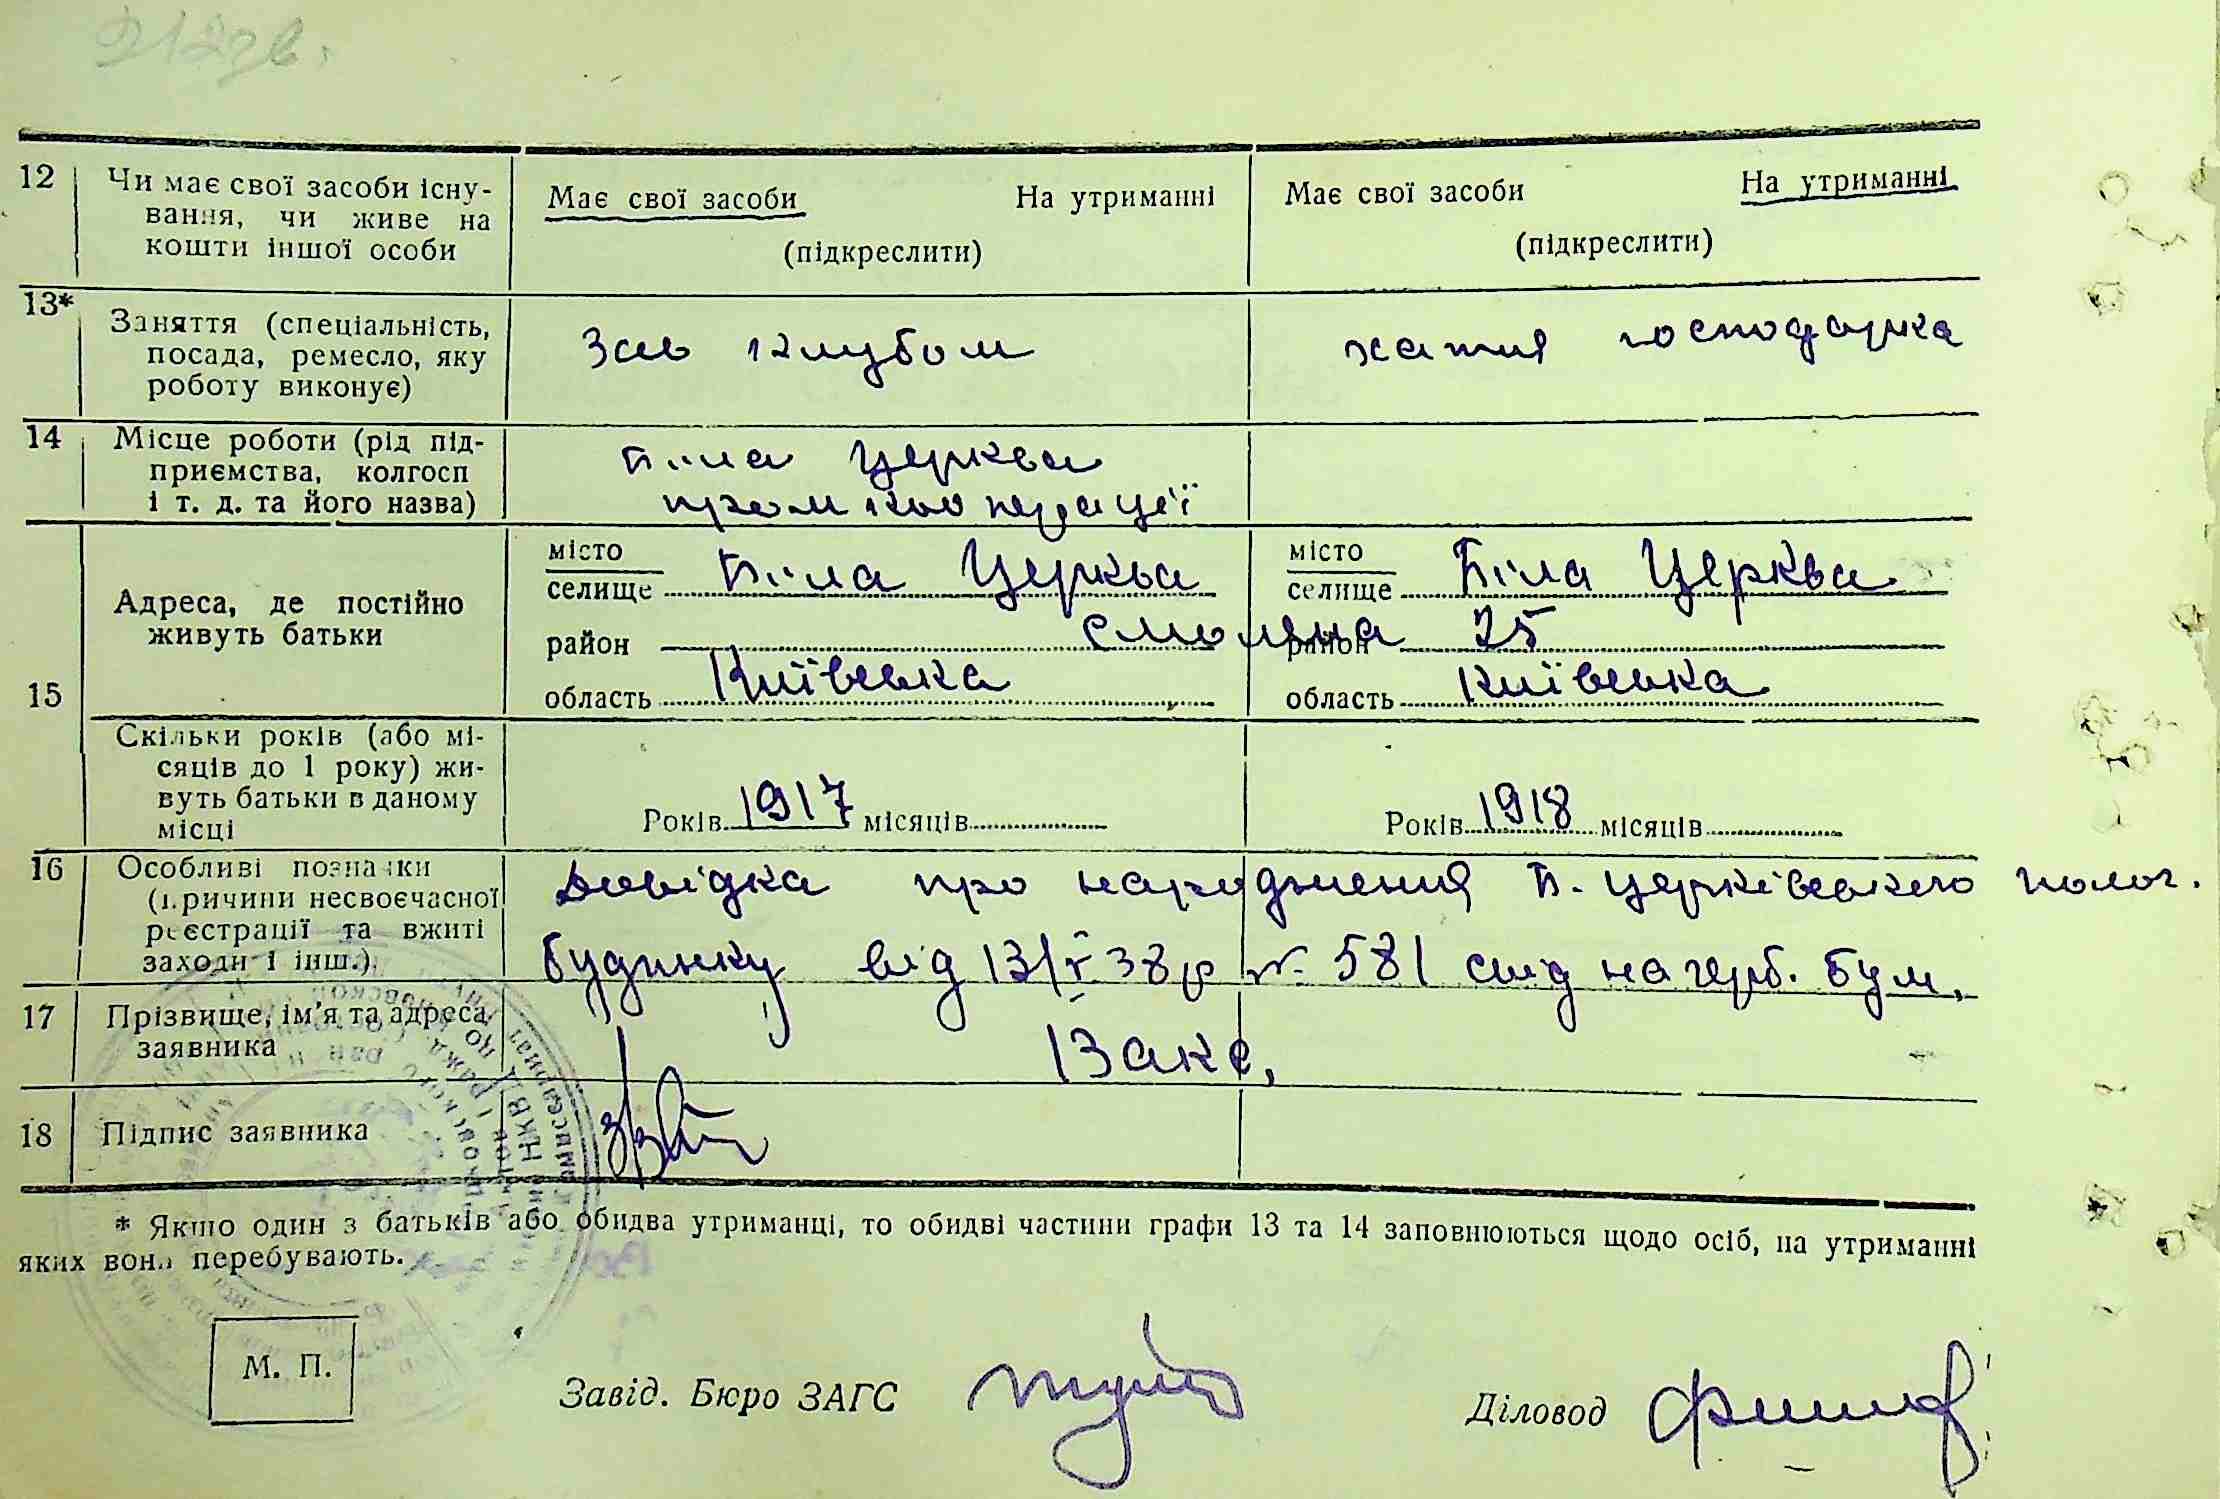 12 Чи має свої засоби існу-
вання, чи живе на
кошти іншої особи
Має свої засоби На утриманні
(підкреслити)
Має свої засоби На утриманні
(підкреслити)
13* Заняття (спеціальність,
посада, ремесло, яку
роботу виконує)
Зав клубом
хатня господарка
14 Місце роботи (рід під-
приємства, колгосп
і т. д. та його назва)
Біла Церква
промкооперації
15 Адреса, де постійно
живуть батьки
місто
селище Біла Церква
район
область Київська
місто
селище Біла Церква
район
область Київська
25
Скільки років (або мі-
сяців до 1 року) жи-
вуть батьки в даному
місці
Років 1917 місяців
Років 1918 місяців
16 Особливі позначки
(причини несвоєчасної
реєстрації та вжиті
заходи і інш.)
Довідка про народження Б. Церківського полог.
будинку від 13/X 38 р № 581 на герб. бум.
17 Прізвище, ім'я та адреса
заявника
18 Підпис заявника
* Якщо один з батьків або обидва утриманці, то обидві частини графи 13 та 14 заповнюються щодо осіб, на утриманні
яких вони перебувають.
М. П.
Завід. Бюро ЗАГС
Діловод